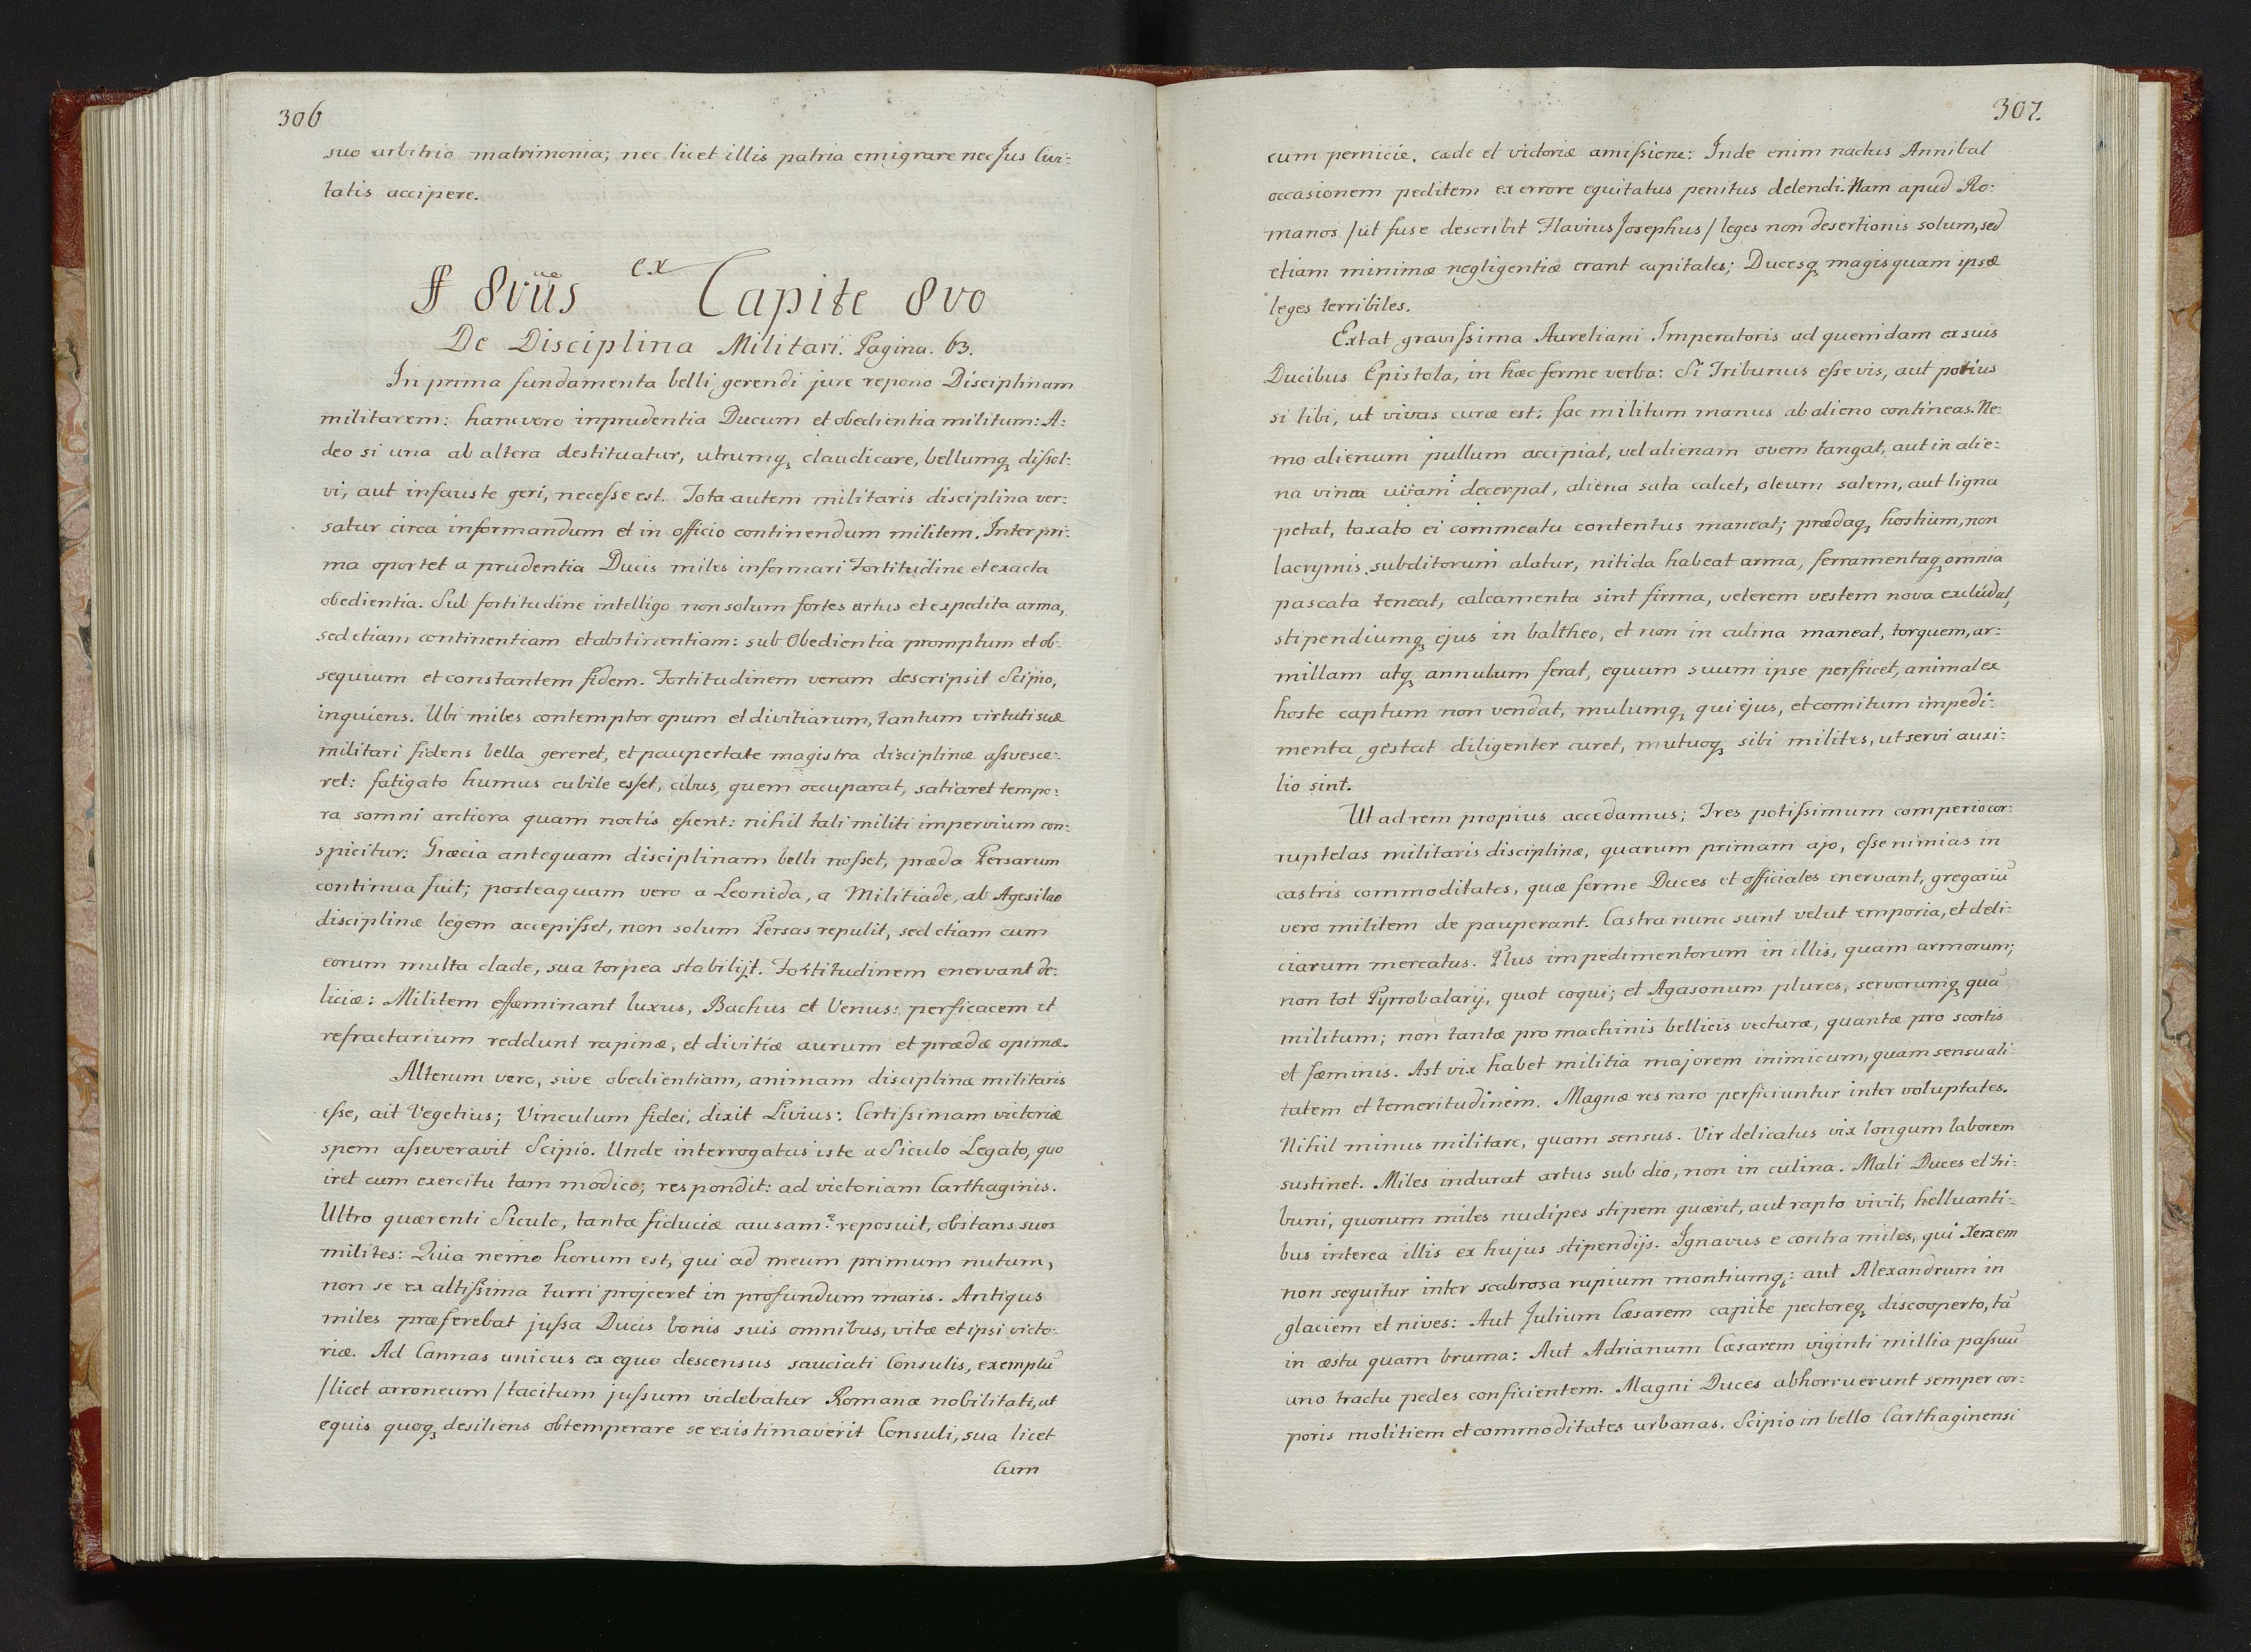 306
suo arbitrio matrimonia; nec licet illis patria emigrare nec Jus Civi:
tatis accipere.
§ 8vüs ex Capite 8vo
De Disciplina Militari. Pagina. 63.
In prima fundamenta belli gerendi jure repono Disciplinam
militarem: hanc vero inprudentia Ducum et obedientia militum: A:
deo si una ab altera destituatur, utrumq₃ claudicare, bellumq₃ dissol:
vi, aut infauste geri, necesse est. Tota autem militaris disciplina ver:
satur circa informandum et in officio continendum militem. Inter pri:
ma oportet a prudentia Ducis miles informari Fortitudine et exacta
obedientia. Sub fortitudine intelligo non solum fortes artus et expedita arma,
sed etiam continentiam et abstinentiam: sub Obedientia promptum et ob:
sequium et constantem fidem. Fortitudinem veram descripsit Scipio,
inquiens. Ubi miles contemptor opum et divitiarum, tantum virtuti suæ
militari fidens bella gereret, et paupertate magistra disciplinæ assvesce:
ret: fatigato humus cubile esset, cibus, quem occuparat, satiaret tempo:
ra somni arctiora quam noctis essent: nihil tali militi impervium con:
spicitur: Græcia antequam disciplinam belli nosset, præda Persarum
continua fuit; posteaquam vero a Leonida, a Militiade, ab Agesilao
disciplinæ legem accepisset, non solum Persas repulit, sed etiam cum
eorum multa clade, sua torpea stabilijt. Fortitudinem enervant de:
liciæ: Militem effœminant luxus, Bachus et Venus: perficacem et
refractarium reddunt rapinæ, et divitiæ aurum et prædæ opimæ.
Alterum vero, sive obedientiam, animam disciplinæ militaris
esse, ait Vegetius; Vinculum fidei, dixit Livius: Certissimam victoriæ
spem asseveravit Scipio. Unde interrogatus iste a Siculo Legato, quo
iret cum exercitu tam modico; respondit: ad victoriam Carthaginis.
Ultro quærenti Siculo, tantæ fiduciæ causam? reposuit, obstans suos
milites: Quia nemo horum est, qui ad meum primum nutum,
non se ex altissima turri projceret in profundum maris. Antiqus
miles præferebat jussa Ducis bonis suis omnibus, vitæ et ipsi victo:
riæ. Ad Cannas unicus ex equo descensus sauciati Consulis, exemplū
/licet arroneum/ tacitum jussum videbatur Romanæ nobilitati, ut
equis quoq₃ desiliens obtemperare se existimaverit Consuli, sua licet
Cum
307.
cum pernicie, cæde et victoriæ amissione: Inde enim nactus Annibal
occasionem peditem ex errore equitatus penitus delendi. Nam apud Ro:
manos /ut fuse describit Flavius Josephus/ leges non desertionis solum, sed
etiam minimæ negligentiæ erant capitales; Ducesq₃ magis quam ipsæ
leges terribiles.
Extat gravissima Aureliani Imperatoris ad quemdam ex suis
Ducibus Epistola, in hæc ferme verba: Si Tribunus esse vis, aut potius
si tibi, ut vivas curæ est: fac militum manus ab alieno contineas. Ne:
mo alienum pullum accipiat, vel alienam ovem tangat, aut in alie:
na vinea uvam decerpat, aliena sata calcet, oleum salem, aut ligna
petat, taxato ei commeatu contentus maneat; prædaq₃ hostium, non
lacrymis subditorum alatur, nitida habeat arma, ferramentaq₃ omnia
pascata teneat, calcamenta sint firma, veterem vestem nova excludat,
stipendiumq₃ ejus in baltheo, et non in culina maneat, torquem, ar:
millam atq₃ annulum ferat, equum suum ipse perfricet, animal ex
hoste captum non vendat, mulumq₃ qui ejus, et comitum impedi:
menta gestat diligenter curet, mutuoq₃ sibi milites, ut servi auxi:
lio sint.
Ut ad rem propius accedamus; Tres potissimum comperio cor:
ruptelas militaris disciplinæ, quarum primam ajo, esse nimias in
castris commoditates, quæ ferme Duces et officiales enervant, gregariū
vero militem de pauperant. Castra nunc sunt velut emporia, et deli:
ciarum mercatus. Plus impedimentorum in illis, quam armorum;
non tot Pyrrobalarij, quot coqui; et Agasonum plures, servorumq₃ quā
militum; non tantæ pro machinis bellicis vecturæ, quantæ pro scortis
et fæminis. Ast vix habet militia majorem inimicum, quam sensuali:
tatem et temeritudinem. Magnæ res raro perficiuntur inter voluptates.
Nihil minus militare, quam sensus. Vir delicatus vix longum laborem
sustinet. Miles indurat artus sub dio, non in culina. Mali Duces et tri:
buni, quorum miles nudipes stipem quærit, aut rapto vivit, helluanti:
bus interea illis ex hujus stipendijs. Ignavus e contra miles, qui Xerxem
non sequitur inter scabrosa rupium montiumq₃: aut Alexandrum in
glaciem et nives: Aut Julium Cæsarem capite pectoreq₃ discooperto, tā
in æstu quam bruma: Aut Adrianum Cæsarem viginti millia passuū
uno tractu pedes conficientem. Magni Duces abhorruerunt semper cor:
poris molitiem et commoditates urbanas. Scipio in bello Carthaginensi